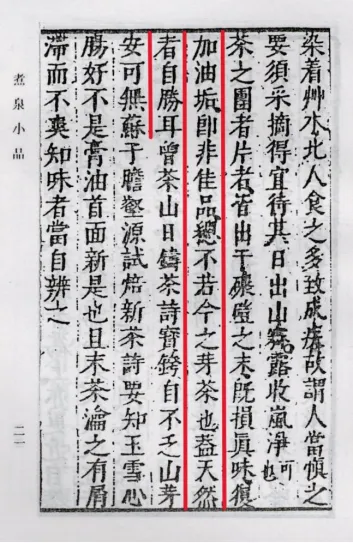 染着艸木北人食之多致成瘴故謂人當慎之
要須采摘得宜待其日出山霽露收嵐淨可也
茶之團者片者皆出于碾磑之末既損眞味復
加油垢即非佳品總不若今之芽茶也蓋天然
者自勝耳曾茶山日鑄茶詩寳銙自不乏山芽
安可無蘇子瞻壑源試焙新茶詩要知玉雪心
腸好不是膏油首面新是也且末茶瀹之有屑
滯而不爽知味者當自辨之
煮泉小品
二一